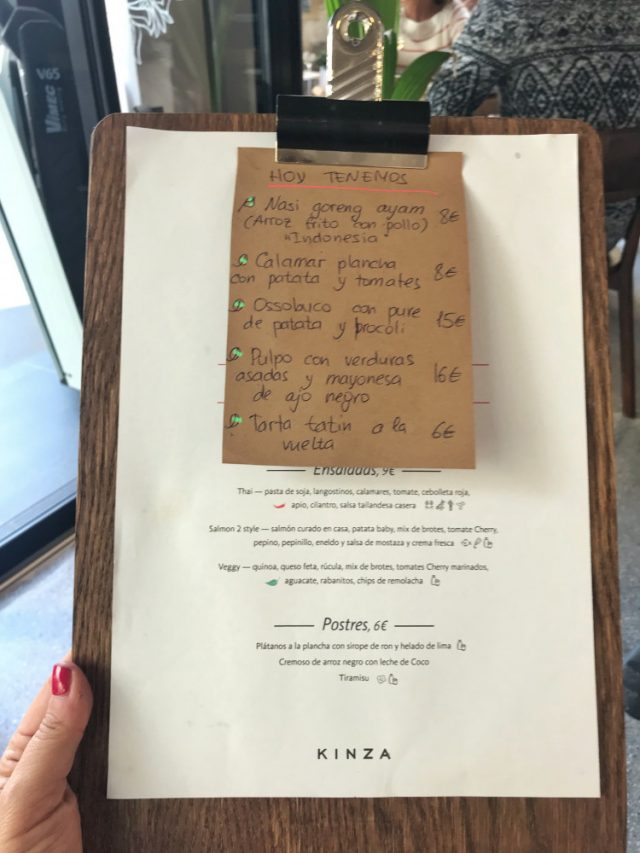 V65
HOY TENEMOS
Nasi goreng ayam 8€
(Arroz frito con pollo)
"Indonesia"
Calamar plancha
con patata y tomates 8€
Ossobuco con pure
de patata y brocoli 15€
Pulpo con verduras
asadas y mayonesa 16€
de ajo negro
Tarta tatin a la 6€
vuelta
Ensaladas, 9€
Thai — pasta de soja, langostinos, calamares, tomate, cebolleta roja,
apio, cilantro, salsa tailandesa casera
Salmon 2 style — salmón curado en casa, patata baby, mix de brotes, tomate Cherry,
pepino, pepinillo, eneldo y salsa de mostaza y crema fresca
Veggy — quinoa, queso feta, rúcula, mix de brotes, tomates Cherry marinados,
aguacate, rabanitos, chips de remolacha
Postres, 6€
Plátanos a la plancha con sirope de ron y helado de lima
Cremoso de arroz negro con leche de Coco
Tiramisu
KINZA